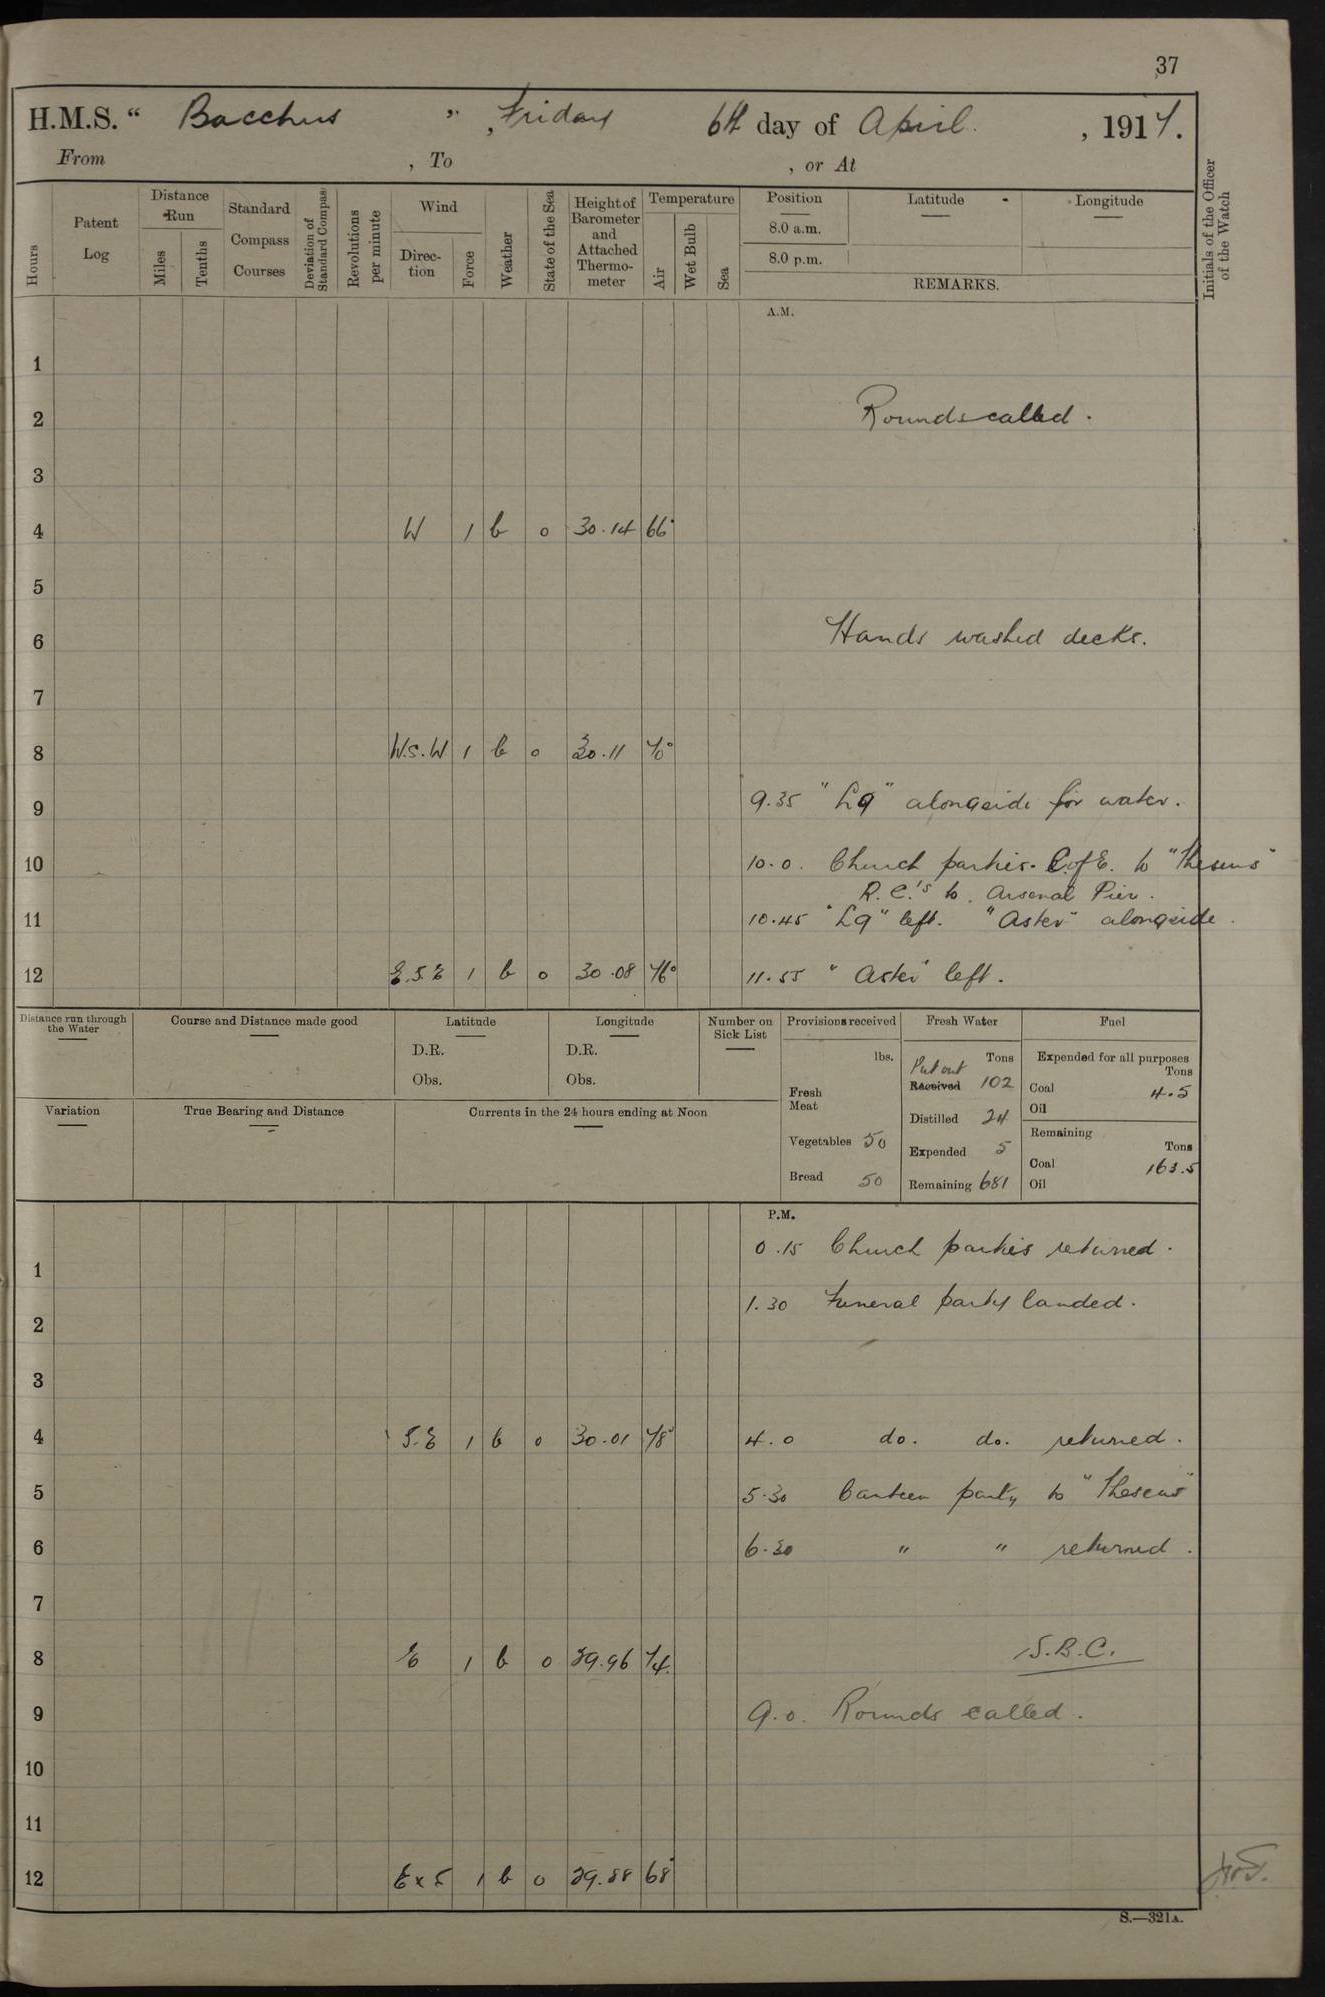 37
H.M.S. “ Bacchus ” , Friday 6th day of April , 1917.
From , To , or At
Hours
Patent Log
Distance Run
Miles
Tenths
Standard Compass Courses
Deviation of Standard Compass
Revolutions per minute
Wind
Direction
Force
Weather
State of the Sea
Height of Barometer and Attached Thermometer
Temperature
Air
Wet Bulb
Sea
Position
8.0 a.m.
8.0 p.m.
Latitude
Longitude
REMARKS.
Initials of the Officer of the Watch
A.M.
1
2 Rounds called.
3
4 W 1 b 0 30.14 66°
5
6 Hands washed decks.
7
8 W.S.W 1 b 0 30.11 70°
9 9.35 "L9" alongside for water.
10 10.0. Church parties. C. of E. to "Theseus"
R.C.'s to Arsenal Pier.
11 10.45 "L9" left. "Aster" alongside.
12 E.S.E 1 b 0 30.08 76° 11.55 "Aster" left.
Distance run through the Water
Course and Distance made good
Latitude
D.R.
Obs.
Longitude
D.R.
Obs.
Number on Sick List
Provisions received
lbs.
Fresh Meat
Vegetables 50
Bread 50
Fresh Water
Tons
Put out
Received 102
Distilled 24
Expended 5
Remaining 681
Fuel
Expended for all purposes
Tons
Coal 4.5
Oil
Remaining
Tons
Coal 163.5
Oil
Variation
True Bearing and Distance
Currents in the 24 hours ending at Noon
P.M.
0.15 Church parties returned.
1
1.30 Funeral party landed.
2
3
4 S.E 1 b 0 30.01 78° 4.0 do. do. returned.
5 5.30 Canteen party to "Theseus"
6 6.30 " " returned.
7
8 E 1 b 0 29.96 74. S.B.C.
9 9.0. Rounds called.
10
11
12 E x S 1 b 0 29.88 68°
S.—321A.